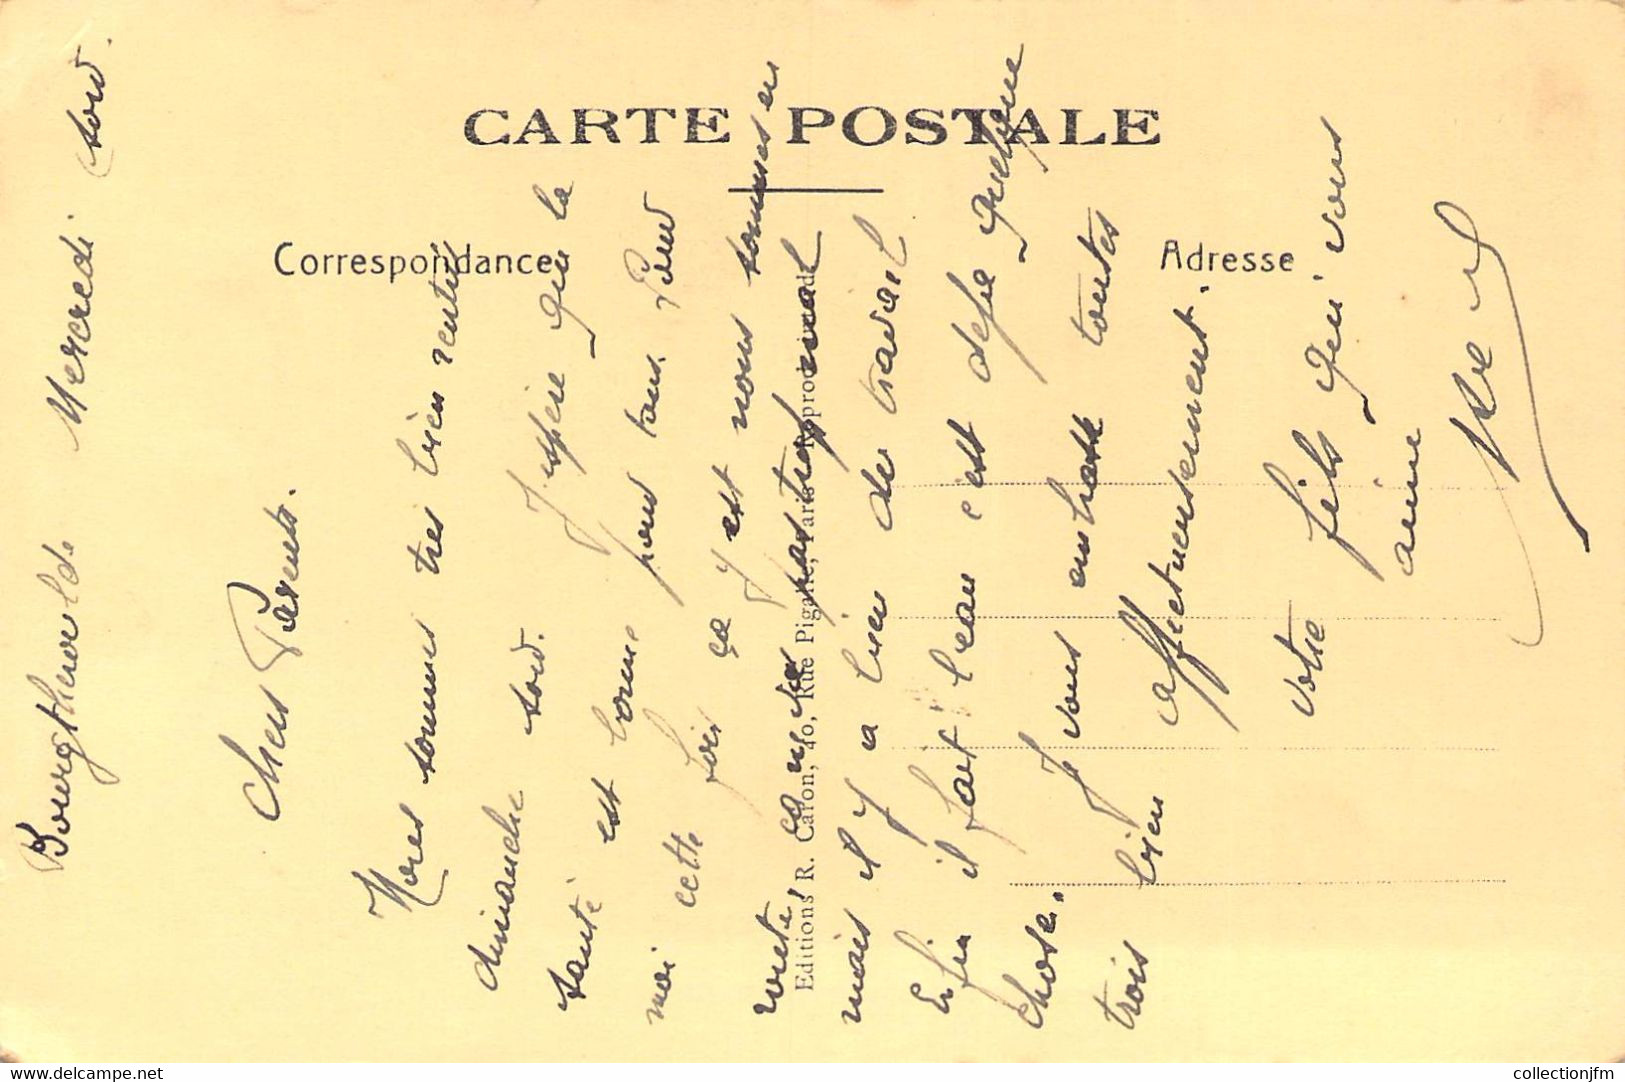 CARTE POSTALE
Correspondance
Adresse
Editions R. Caron, 40, Rue Pigalle, Paris Reproduction interd.
Bourgtheroulde Mercredi soir.
Chers Parents.
Nous sommes très bien rentrés
dimanche soir. J'espère que la
santé est bonne pour tous. Pour
moi cette fois ça y est nous sommes en
route, ça ne va pas trop mal
mais il y a bien du travail
Enfin il fait beau c'est déjà quelque
chose. Je vous embrasse toutes
trois bien affectueusement.
votre fils qui vous
aime
www.delcampe.net
collectionjfm